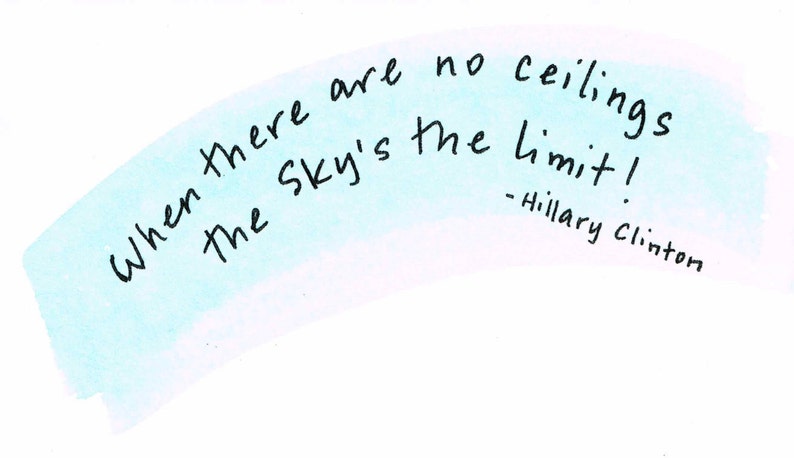 When there are no ceilings
the Sky's the limit!
-Hillary Clinton